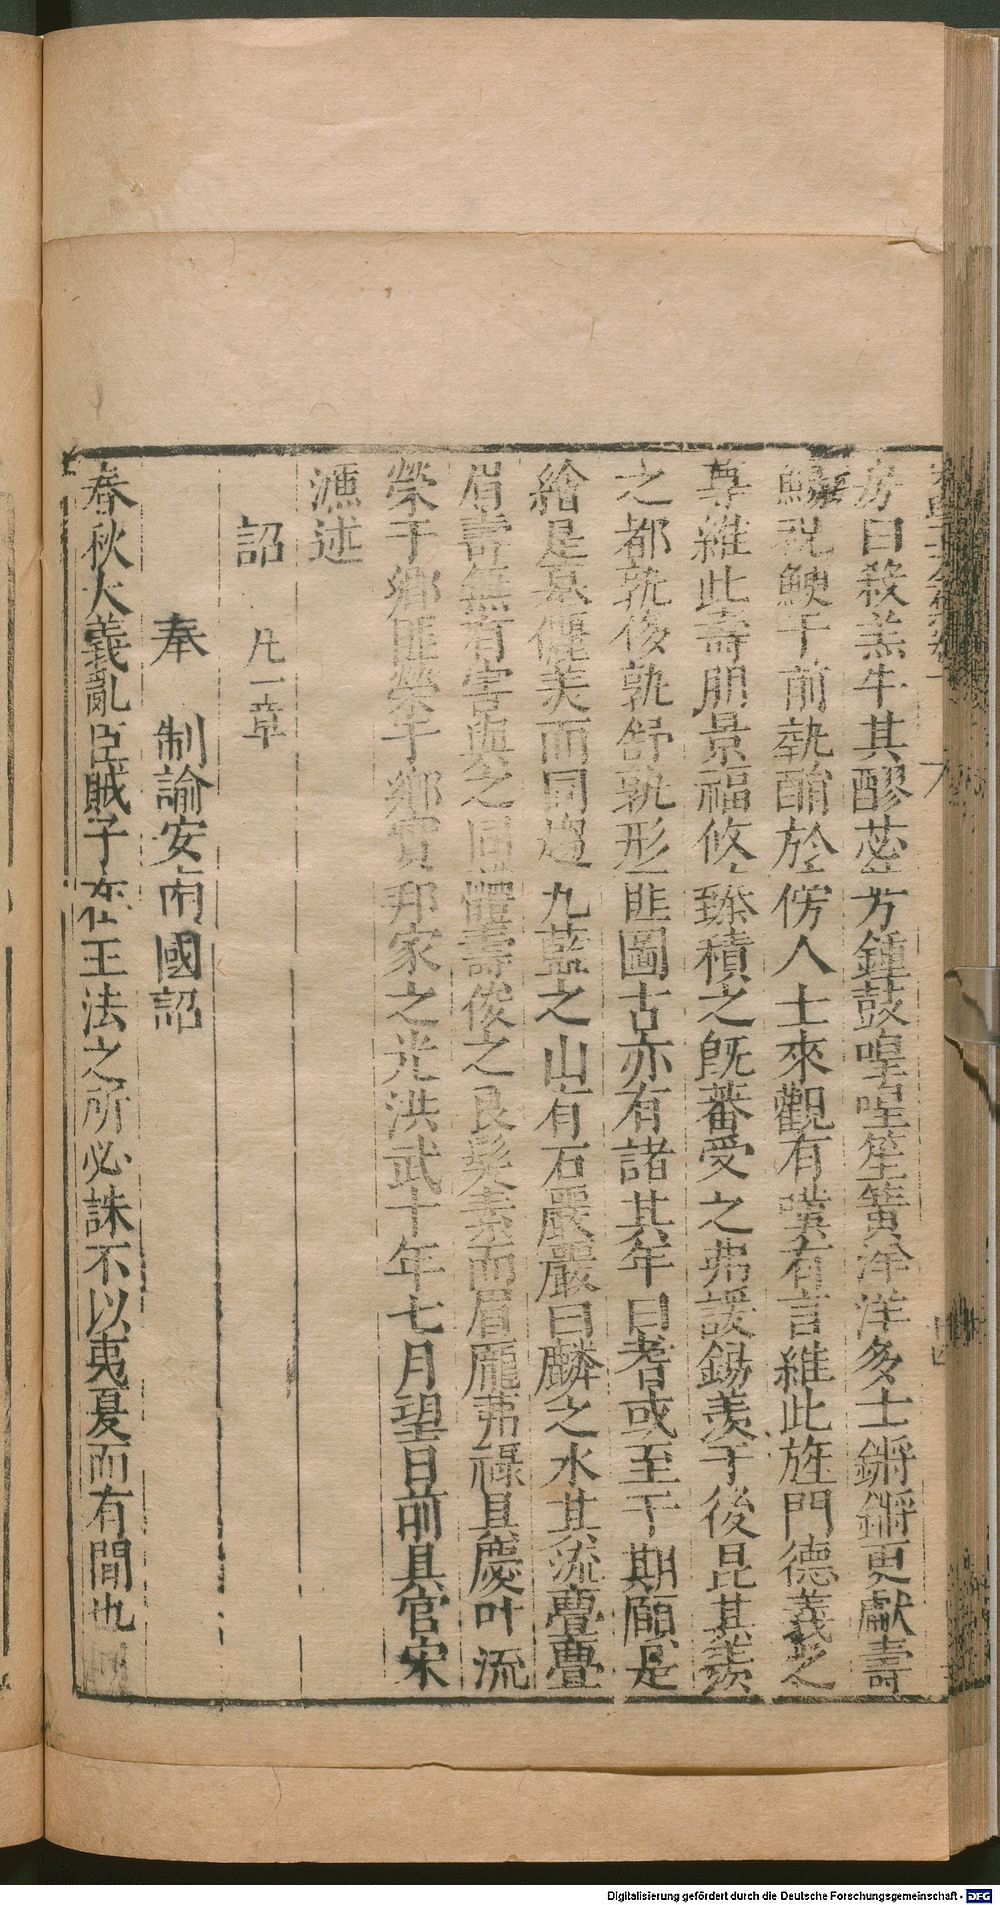 房曰殺羔牛其醪苾芳鍾鼓喤喤笙簧洋洋多士鏘鏘更獻壽
鯁祝鯁于前執酳於傍人士來觀有嘆有言維此旌門德義之
尊維此壽朋景福攸臻積之旣蕃受之弗諼錫羨于後昆其羨
之都孰俊孰舒孰形匪圖古亦有諸其年曰耆或至于期願是
繪是哀儷美而同趨九藍之山有石嚴嚴曰麟之水其流亹亹
眉壽無有害與之同體壽俊之良髮素而眉龐茀祿且慶叶流
榮于鄉匪榮于鄉實邦家之光洪武十年七月望日前具官宋
濂述
詔 凡一章
奉 制諭安南國詔
春秋大義亂臣賊子在王法之所必誅不以夷夏而有間也
Digitalisierung gefördert durch die Deutsche Forschungsgemeinschaft - DFG